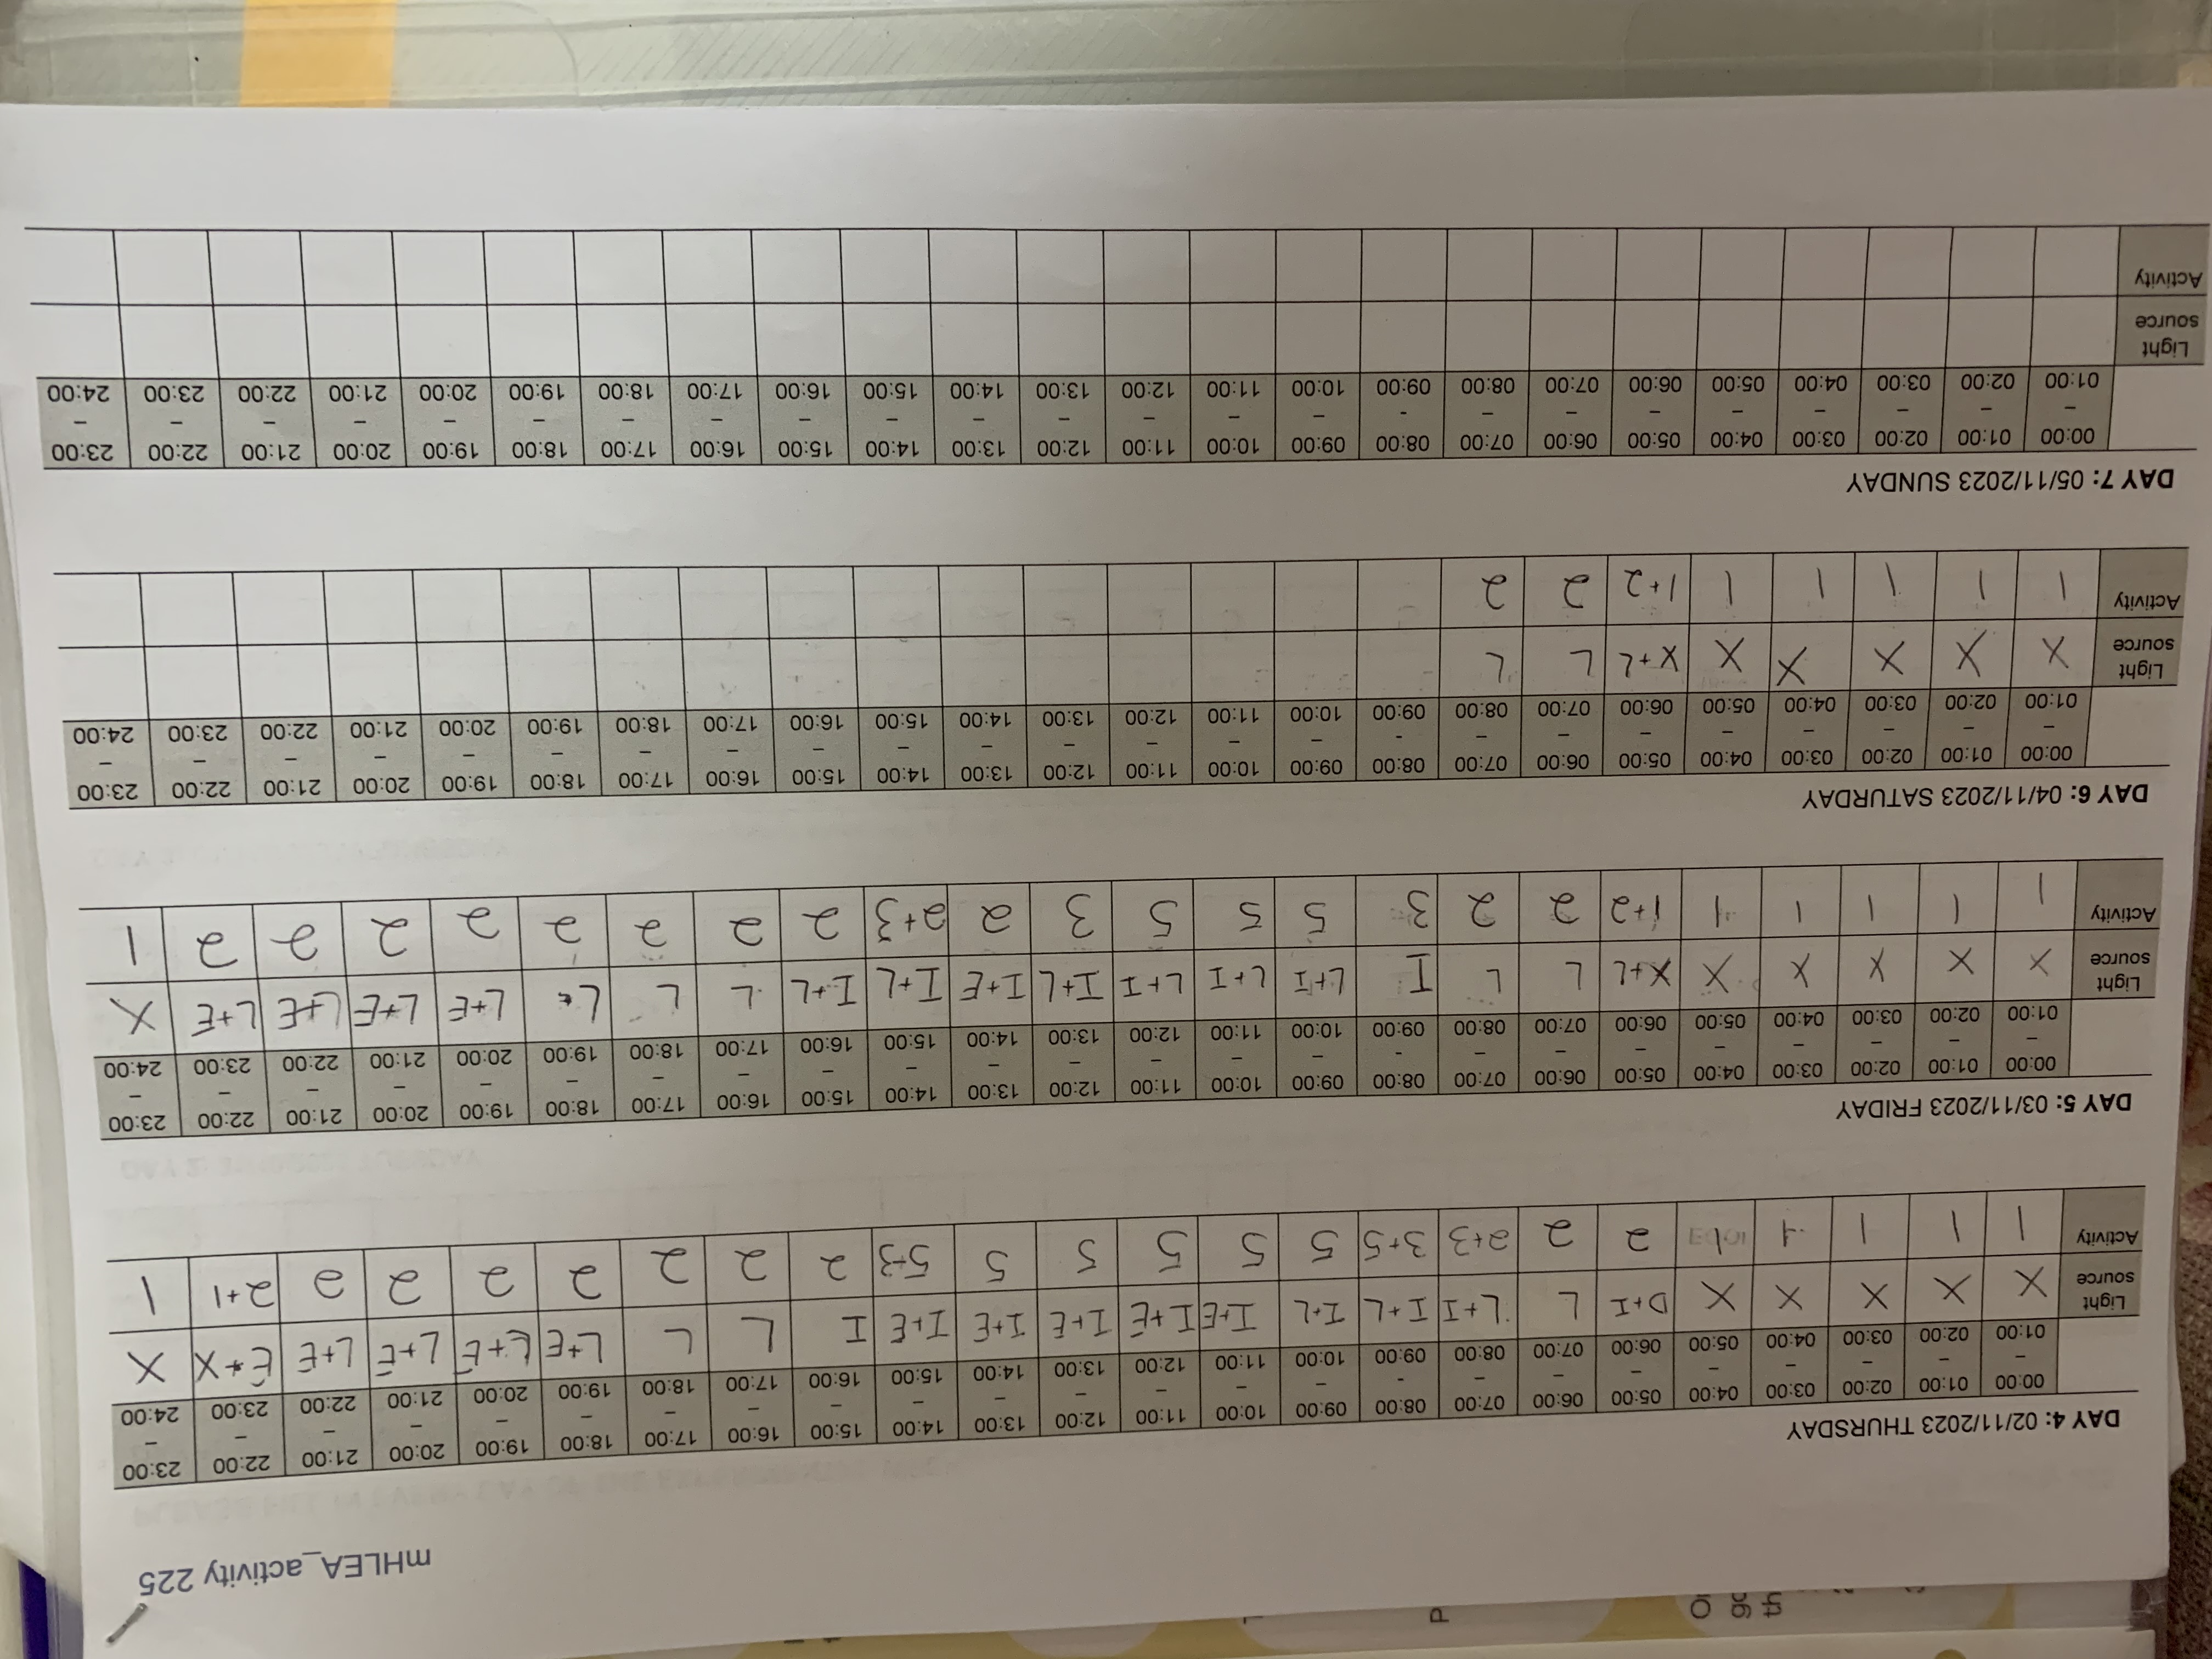 mHLEA_activity 225
DAY 4: 02/11/2023 THURSDAY
00:00 – 01:00 01:00 – 02:00 02:00 – 03:00 03:00 – 04:00 04:00 – 05:00 05:00 – 06:00 06:00 – 07:00 07:00 – 08:00 08:00 - 09:00 09:00 – 10:00 10:00 – 11:00 11:00 – 12:00 12:00 – 13:00 13:00 – 14:00 14:00 – 15:00 15:00 – 16:00 16:00 – 17:00 17:00 – 18:00 18:00 – 19:00 19:00 – 20:00 20:00 – 21:00 21:00 – 22:00 22:00 – 23:00 23:00 – 24:00
Light source X X X X X D+I L L+I I+L I+L I+E I+E I+E I+E I+E I L L L+E L+E L+E L+E E+X X
Activity 1 1 1 1 1 2 2 2+3 3+5 5 5 5 5 5 5+3 2 2 2 2 2 2 2 2+1 1
DAY 5: 03/11/2023 FRIDAY
00:00 – 01:00 01:00 – 02:00 02:00 – 03:00 03:00 – 04:00 04:00 – 05:00 05:00 – 06:00 06:00 – 07:00 07:00 – 08:00 08:00 - 09:00 09:00 – 10:00 10:00 – 11:00 11:00 – 12:00 12:00 – 13:00 13:00 – 14:00 14:00 – 15:00 15:00 – 16:00 16:00 – 17:00 17:00 – 18:00 18:00 – 19:00 19:00 – 20:00 20:00 – 21:00 21:00 – 22:00 22:00 – 23:00 23:00 – 24:00
Light source X X X X X X+L L L I L+I L+I L+I I+L I+E I+L I+L L L L L+E L+E L+E L+E X
Activity 1 1 1 1 1 1+2 2 2 3 5 5 5 3 2 2+3 2 2 2 2 2 2 2 2 1
DAY 6: 04/11/2023 SATURDAY
00:00 – 01:00 01:00 – 02:00 02:00 – 03:00 03:00 – 04:00 04:00 – 05:00 05:00 – 06:00 06:00 – 07:00 07:00 – 08:00 08:00 - 09:00 09:00 – 10:00 10:00 – 11:00 11:00 – 12:00 12:00 – 13:00 13:00 – 14:00 14:00 – 15:00 15:00 – 16:00 16:00 – 17:00 17:00 – 18:00 18:00 – 19:00 19:00 – 20:00 20:00 – 21:00 21:00 – 22:00 22:00 – 23:00 23:00 – 24:00
Light source X X X X X X+L L L
Activity 1 1 1 1 1 1+2 2 2
DAY 7: 05/11/2023 SUNDAY
00:00 – 01:00 01:00 – 02:00 02:00 – 03:00 03:00 – 04:00 04:00 – 05:00 05:00 – 06:00 06:00 – 07:00 07:00 – 08:00 08:00 - 09:00 09:00 – 10:00 10:00 – 11:00 11:00 – 12:00 12:00 – 13:00 13:00 – 14:00 14:00 – 15:00 15:00 – 16:00 16:00 – 17:00 17:00 – 18:00 18:00 – 19:00 19:00 – 20:00 20:00 – 21:00 21:00 – 22:00 22:00 – 23:00 23:00 – 24:00
Light source
Activity